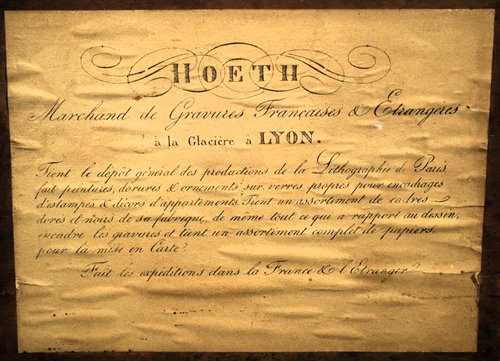 HOETH
Marchand de Gravures Françaises & Etrangères
à la Glacière à LYON.
Tient le dépôt général des productions de la Lithographie de Paris,
fait peintures, dorures & ornements sur verres propres pour encadrages
d'estampes & décors d'appartements. Tient un assortiment de cadres
dorés et noirs de sa fabrique, de même tout ce qui a rapport au dessin,
encadre les gravures et tient un assortiment complet de papiers,
pour la mise en Carte.
Fait les expéditions dans la France & l'Etranger.